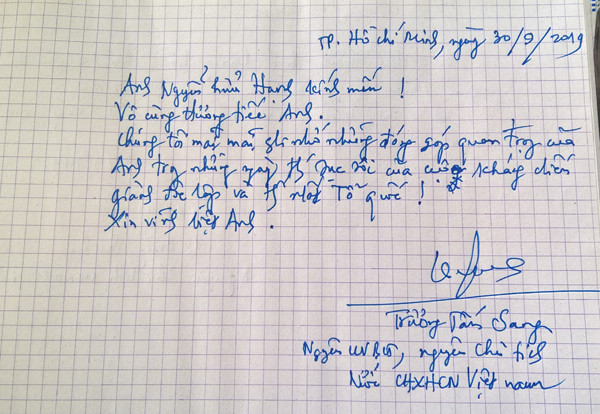 TP. Hồ Chí Minh, ngày 30/9/2019
Anh Nguyễn Hữu Hạnh kính mến !
Vô cùng thương tiếc Anh.
Chúng tôi mãi mãi ghi nhớ những đóng góp quan trọng của
Anh trong những ngày cuối của cuộc kháng chiến
giành độc lập và thống nhất Tổ quốc !
Xin vĩnh biệt Anh.
Trương Tấn Sang
Nguyên UVBCT, nguyên Chủ tịch
Nước CHXHCN Việt nam